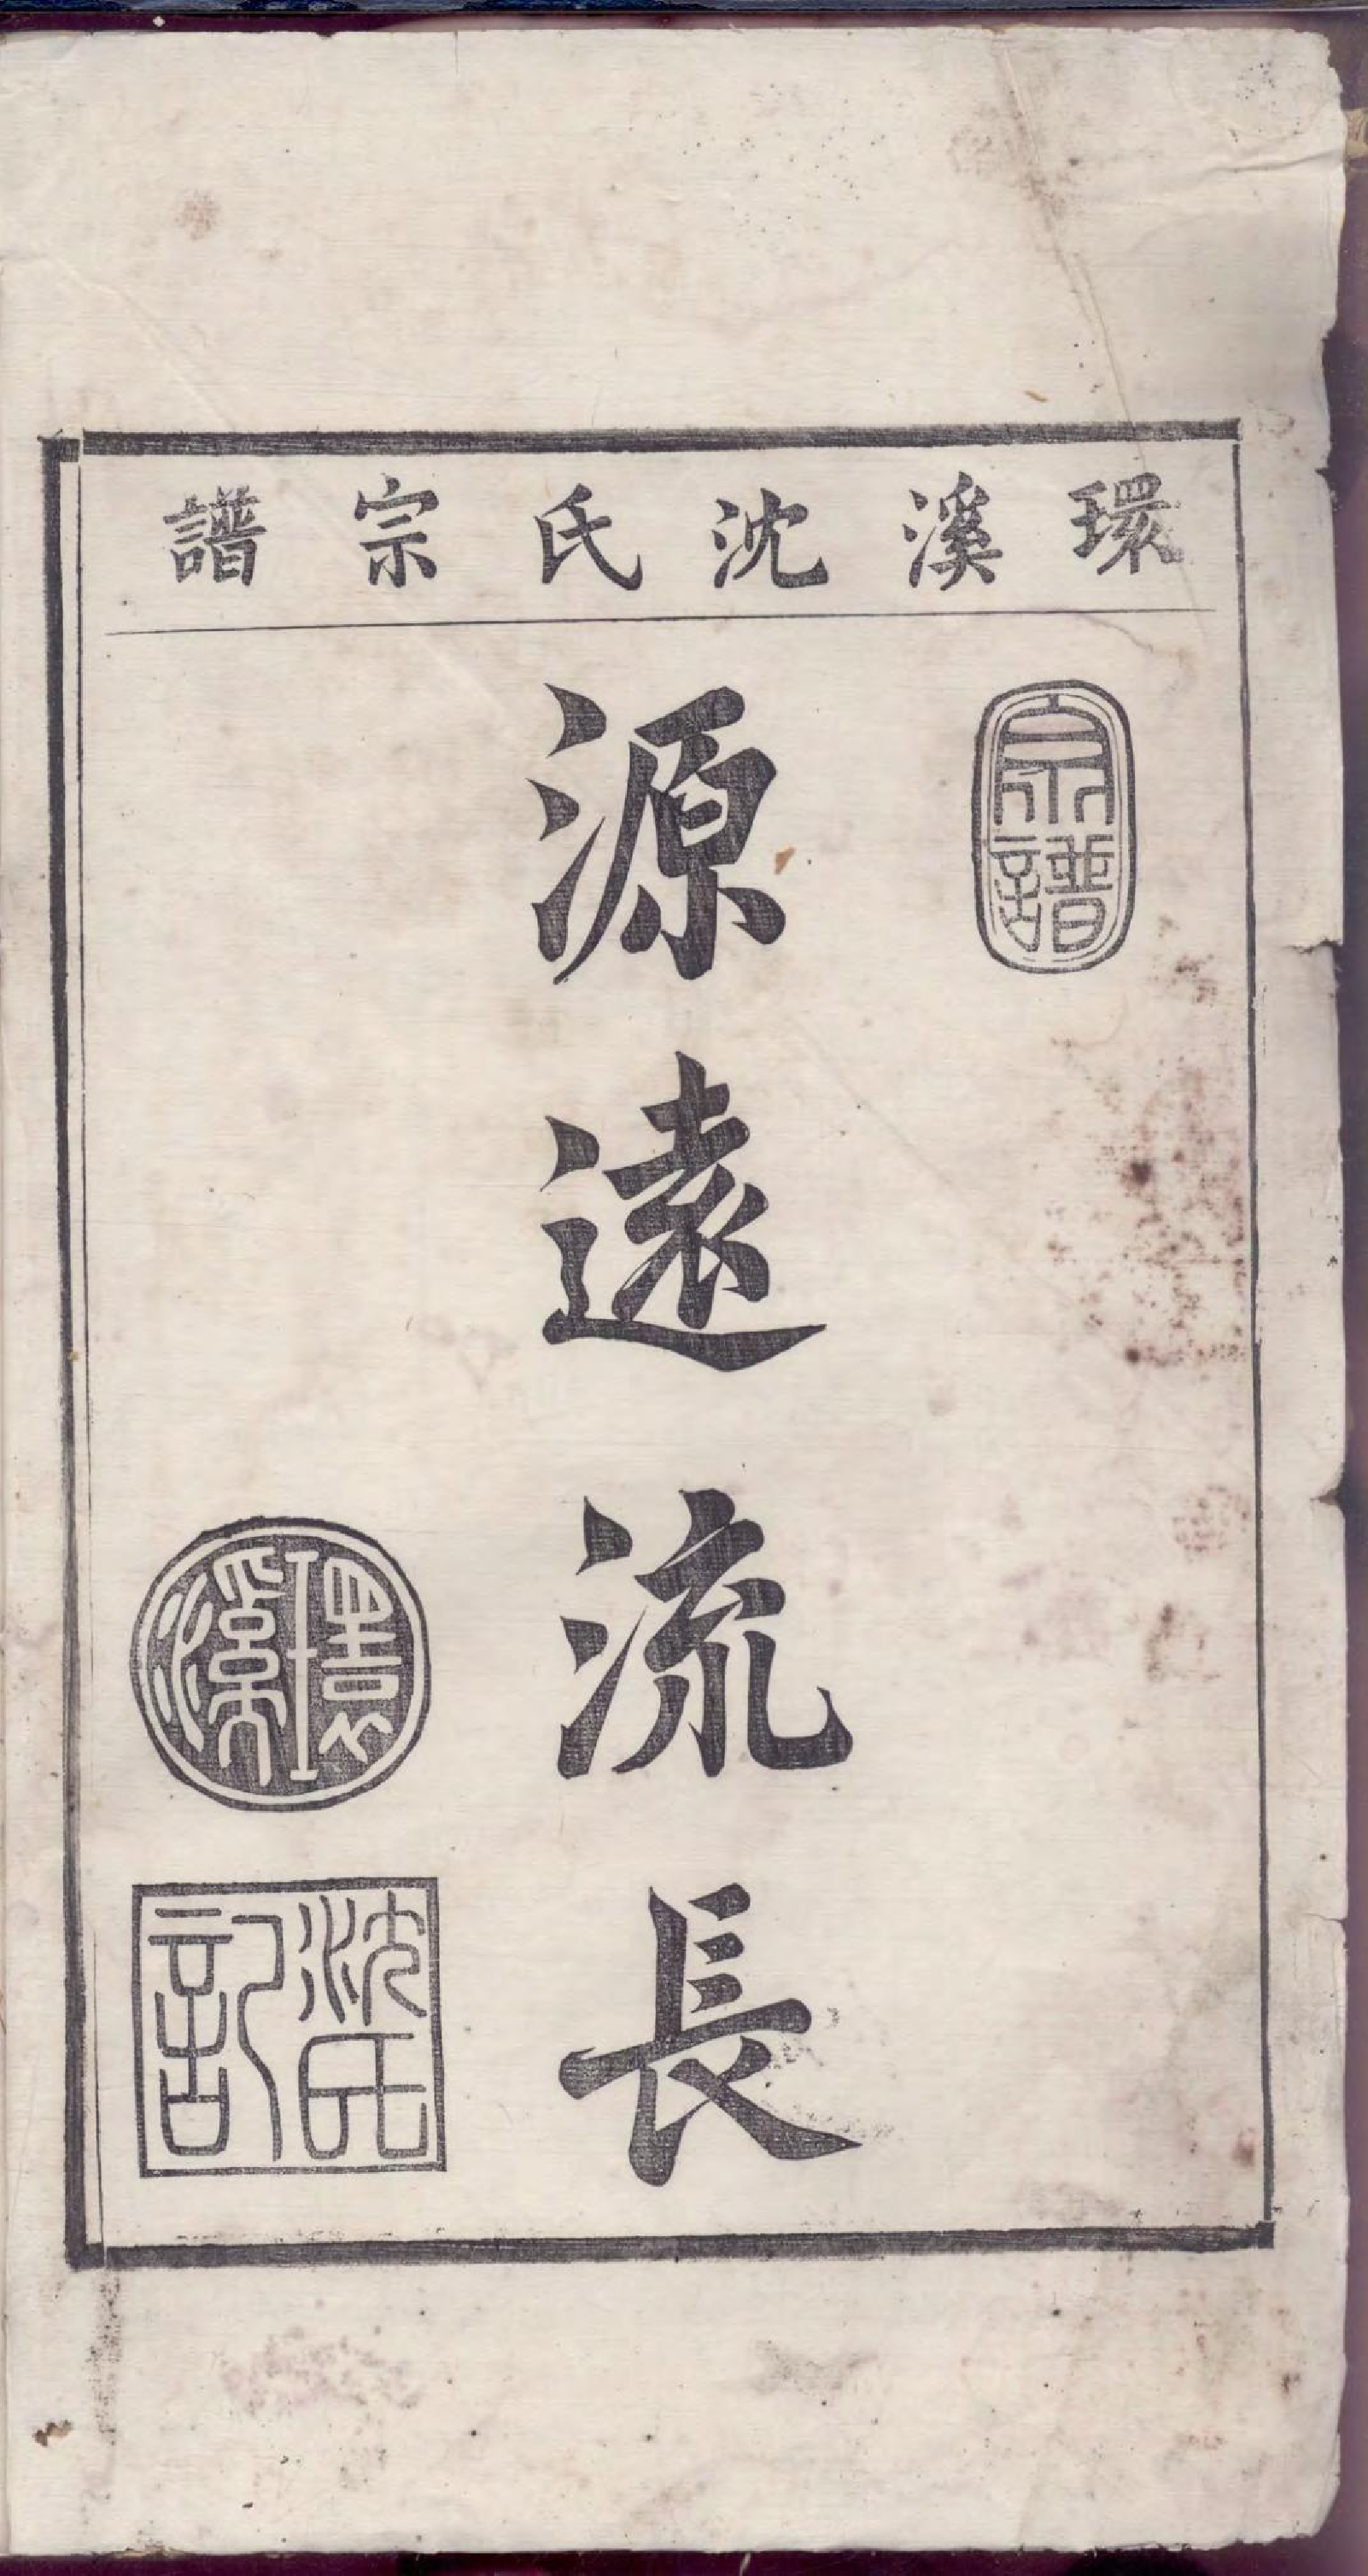 環溪沈氏宗譜
宗譜
源遠流長
環溪
沈氏記